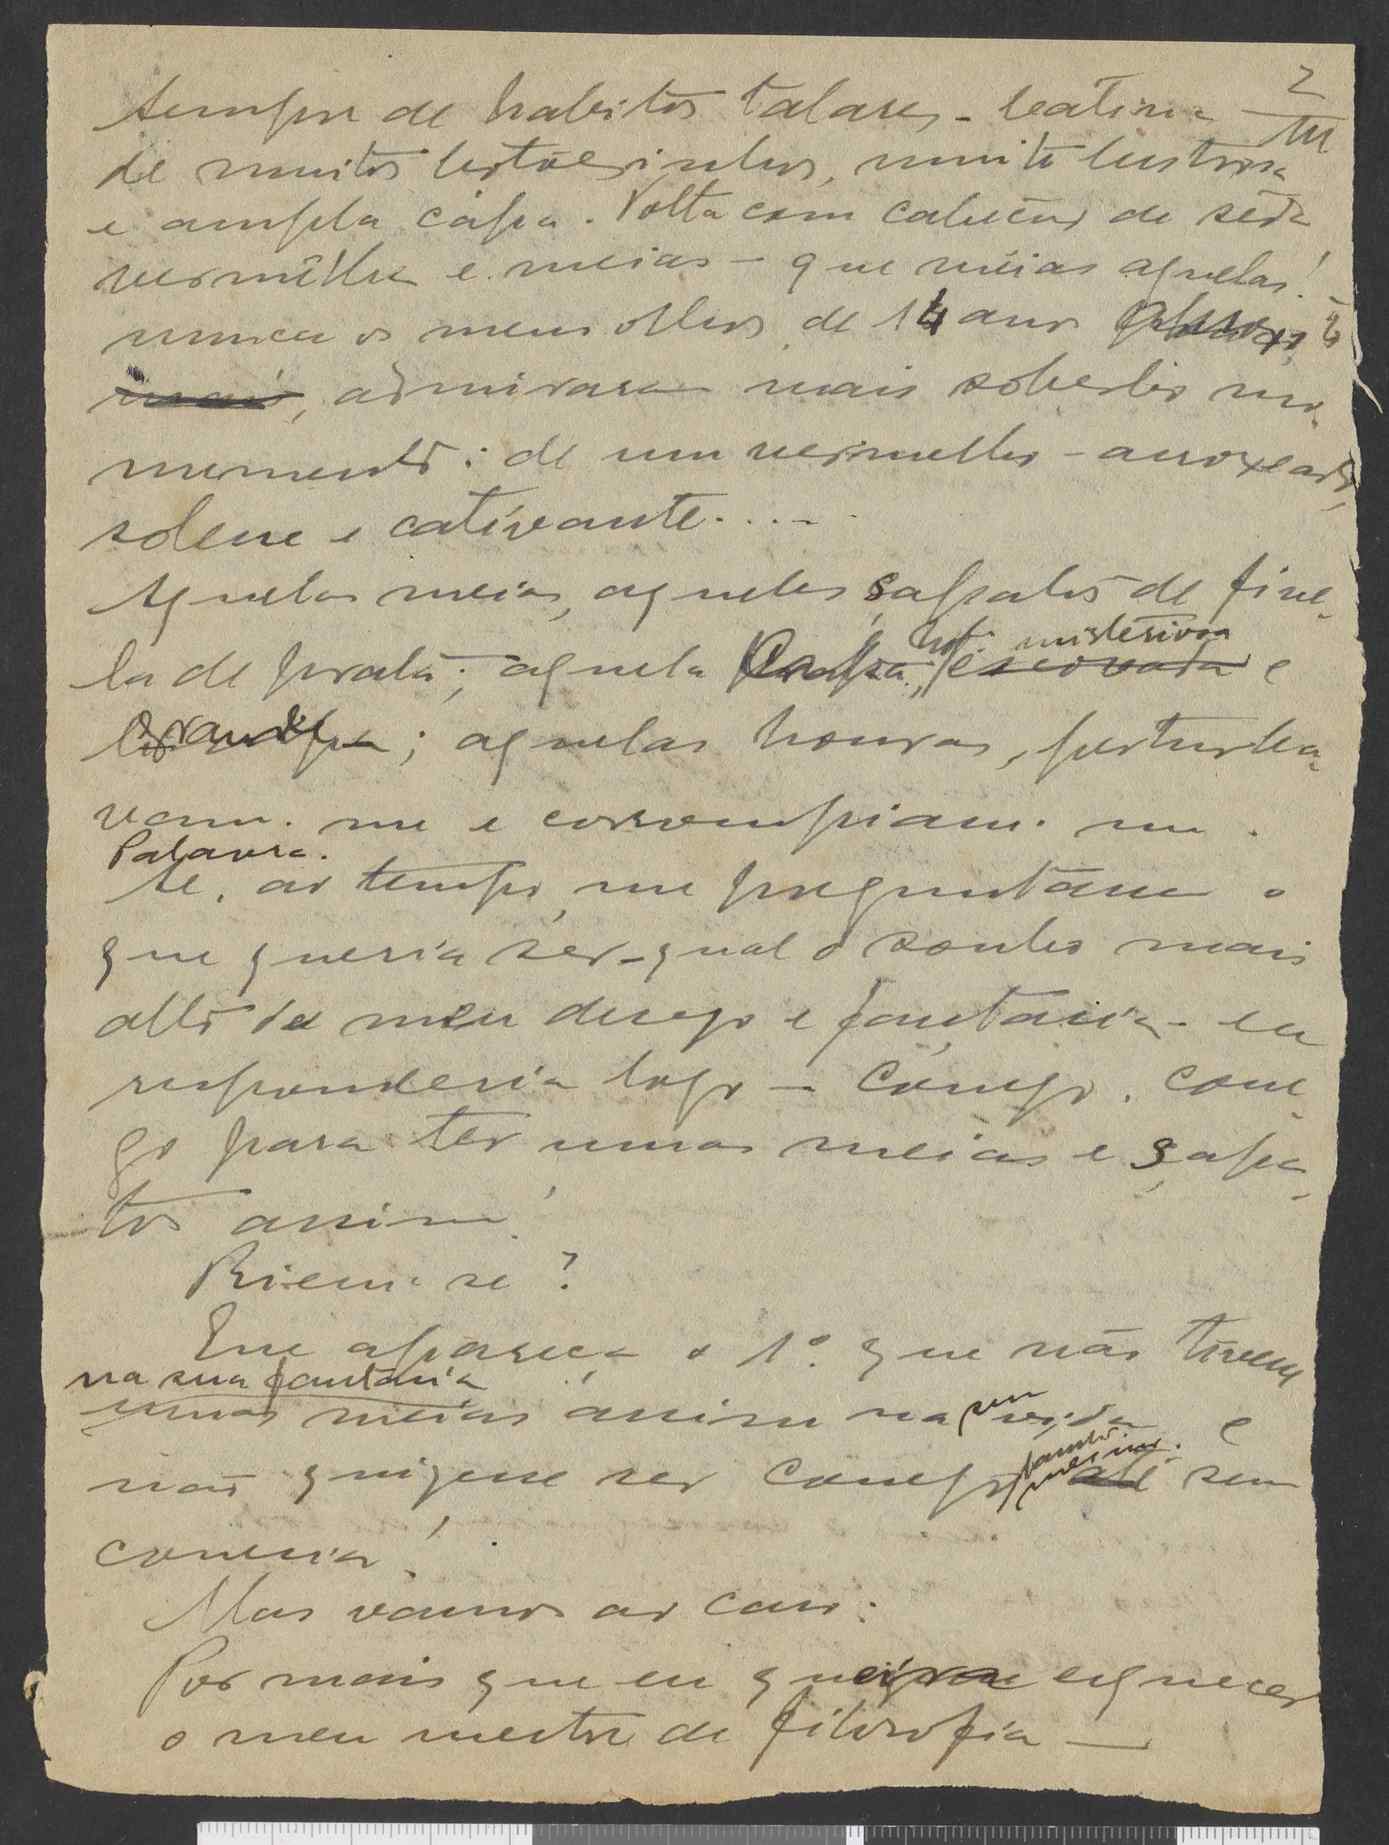 2
III
sempre de habitos talares - batina
de muitos botõesinhos, muito lustrosa
e ampla cápa. Volta com cabeção de sêda
vermêlha e meias - que meias aquelas!
nunca os meus olhos de 14 anos
admiraram mais soberbo mo-
numento: de um vermelho-arroxeado,
solene e cativante....
Aquelas meias, aqueles sapatos de five-
la de prata; aquela capa misteriosa e
grande; aquelas honras, perturba-
vam-me e corrompiam-me.
Palavra.
Se, ao tempo, me preguntásse o
que queria sêr - qual o sonho mais
alto do meu desejo e fantasia - eu
responderia logo - Cónego. Cone-
go para ter umas meias e sapa-
tos assim!
Riem-se?
Que apareça o 1.º que não tivesse
na sua fantasia
umas meias assim na sua vida e
não quizesse ser conego até sem
conesia!
Mas vamos ao caso:
Por mais que eu queira esquecer
o meu mestre de filosofia —